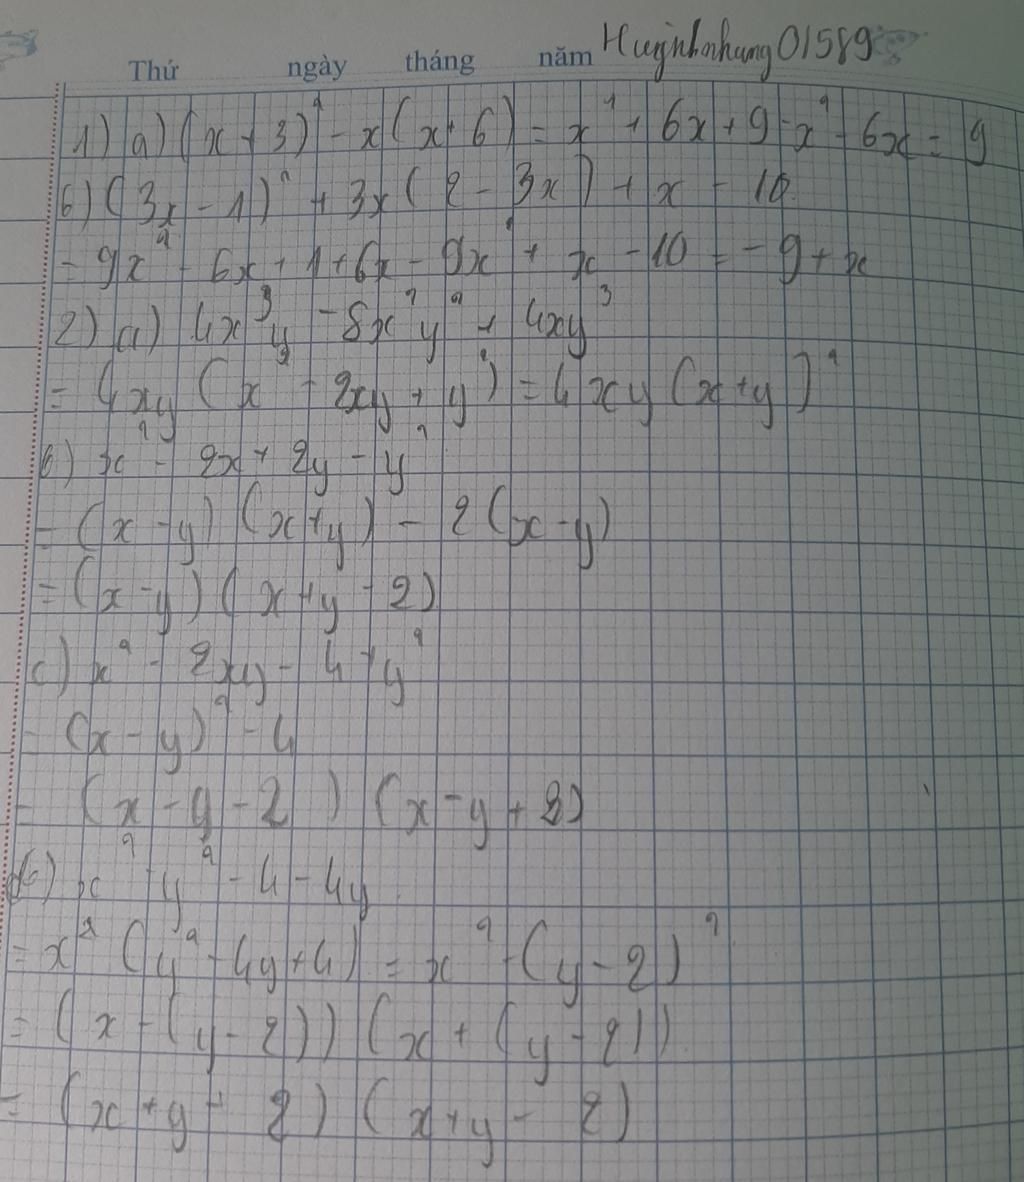 Thứ ngày tháng năm Huỳnhnhung01589
1) a) (x + 3)² - x(x + 6) = x² + 6x + 9 - x² - 6x = 9
b) (3x - 1)² + 3x(2 - 3x) + x - 10
= 9x² - 6x + 1 + 6x - 9x² + x - 10 = -9 + x
2) a) 4x³y - 8x²y² + 4xy³
= 4xy (x² - 2xy + y²) = 4xy (x+y)²
b) x² - 2x + 2y - y²
= (x - y) (x+y) - 2(x-y)
= (x-y) (x+y - 2)
c) x² - 2xy - 4 + y²
= (x - y)² - 4
= (x - y - 2) (x - y + 2)
x² - y² - 4 - 4y
= x² (y² - 4y + 4) = x² - (y - 2)²
= (x - (y - 2)) (x + (y - 2))
= (x + y - 2) (x + y - 2)